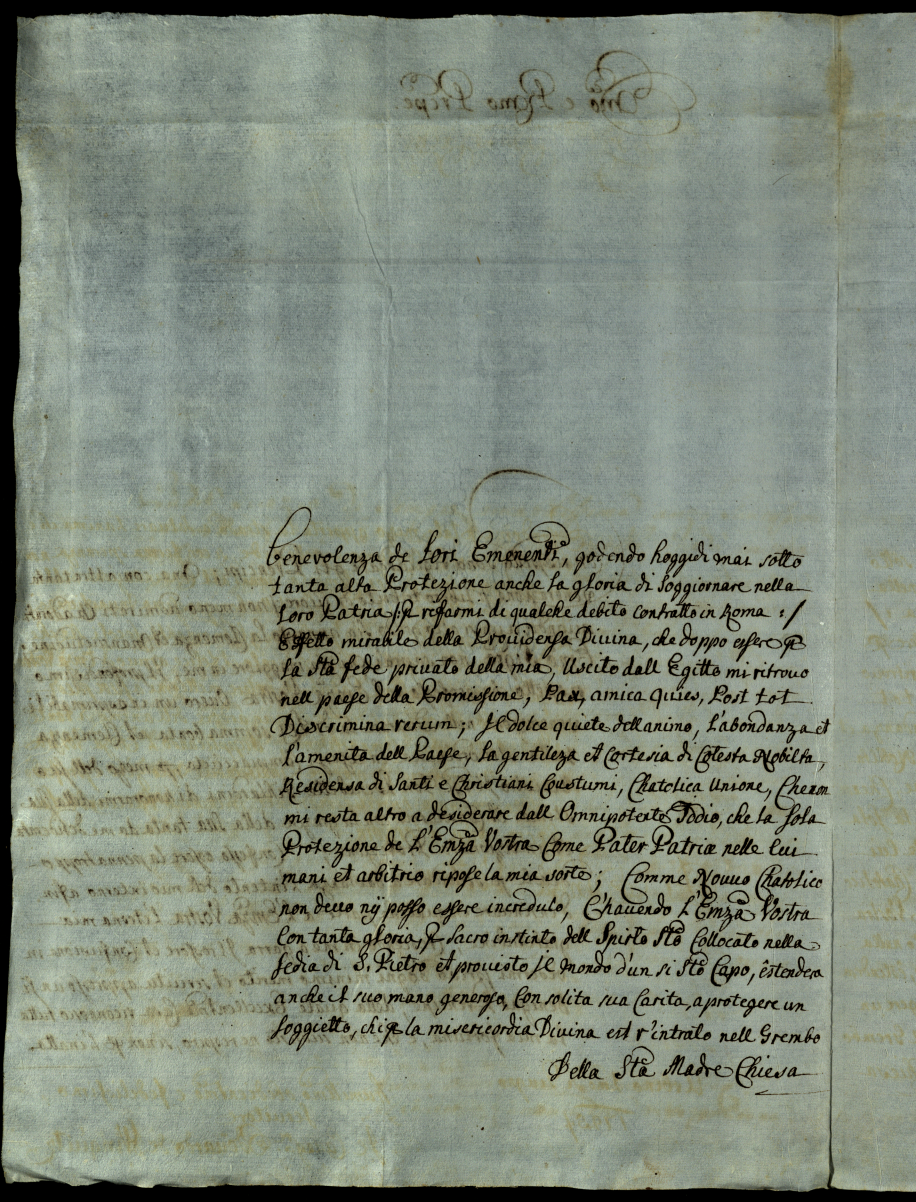 benevolenza de Lori Emenenze, godendo hoggidi mai sotto
tanta alta Protezione anche la gloria di Soggiornare nella
Loro Patria /: ꝑ reffarmi di qualche debito contratto in Roma :/
Effetto mirabile della Providensa Divina, che doppo essere ꝑ
la Sta fede privato della mia, Uscito dall Egitto mi ritrovo
nell paese della Promissione, Pax, amica quies, Post tot
Discrimina rerum; Il dolce quiete dell animo, L'abondanza et
L'amenita dell Paese, la gentileza et Cortesia di Cotesta Nobilta,
Residensa di Santi e Christiani Coustumi, Chatolica Unione, Che non
mi resta altro a desiderare dall Omnipotente Iddio, che la Sola
Protezione de L'Emza Vostra Come Pater Patriæ nelle cui
mani et arbitrio ripose la mia sorte; Comme Nouvo Chatolico
non devo nÿ posso essere incredulo, C'havendo L'Emza Vostra
Con tanta gloria, ꝑ Sacro instinto dell Spirto Sto Collocato nella
Sedia di S. Pietro et provisto Il mondo d'un si Sto Capo, estendera
anche il suo mano generoso, Con solita sua Carita, a protegere un
Soggietto, chi ꝑ la misericordia Divina est r'intrato nell Grembo
Della Sta Madre Chiesa